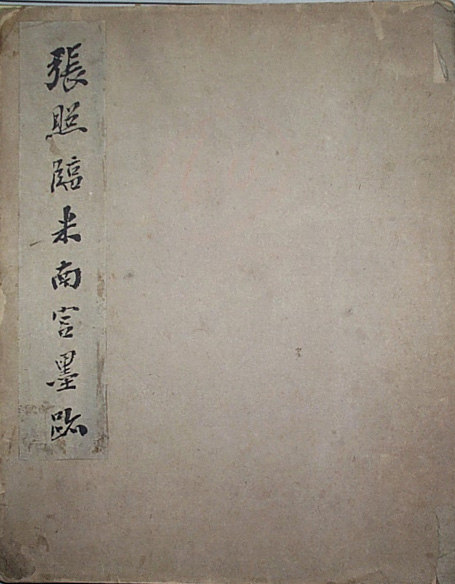 張照臨米南宮墨跡